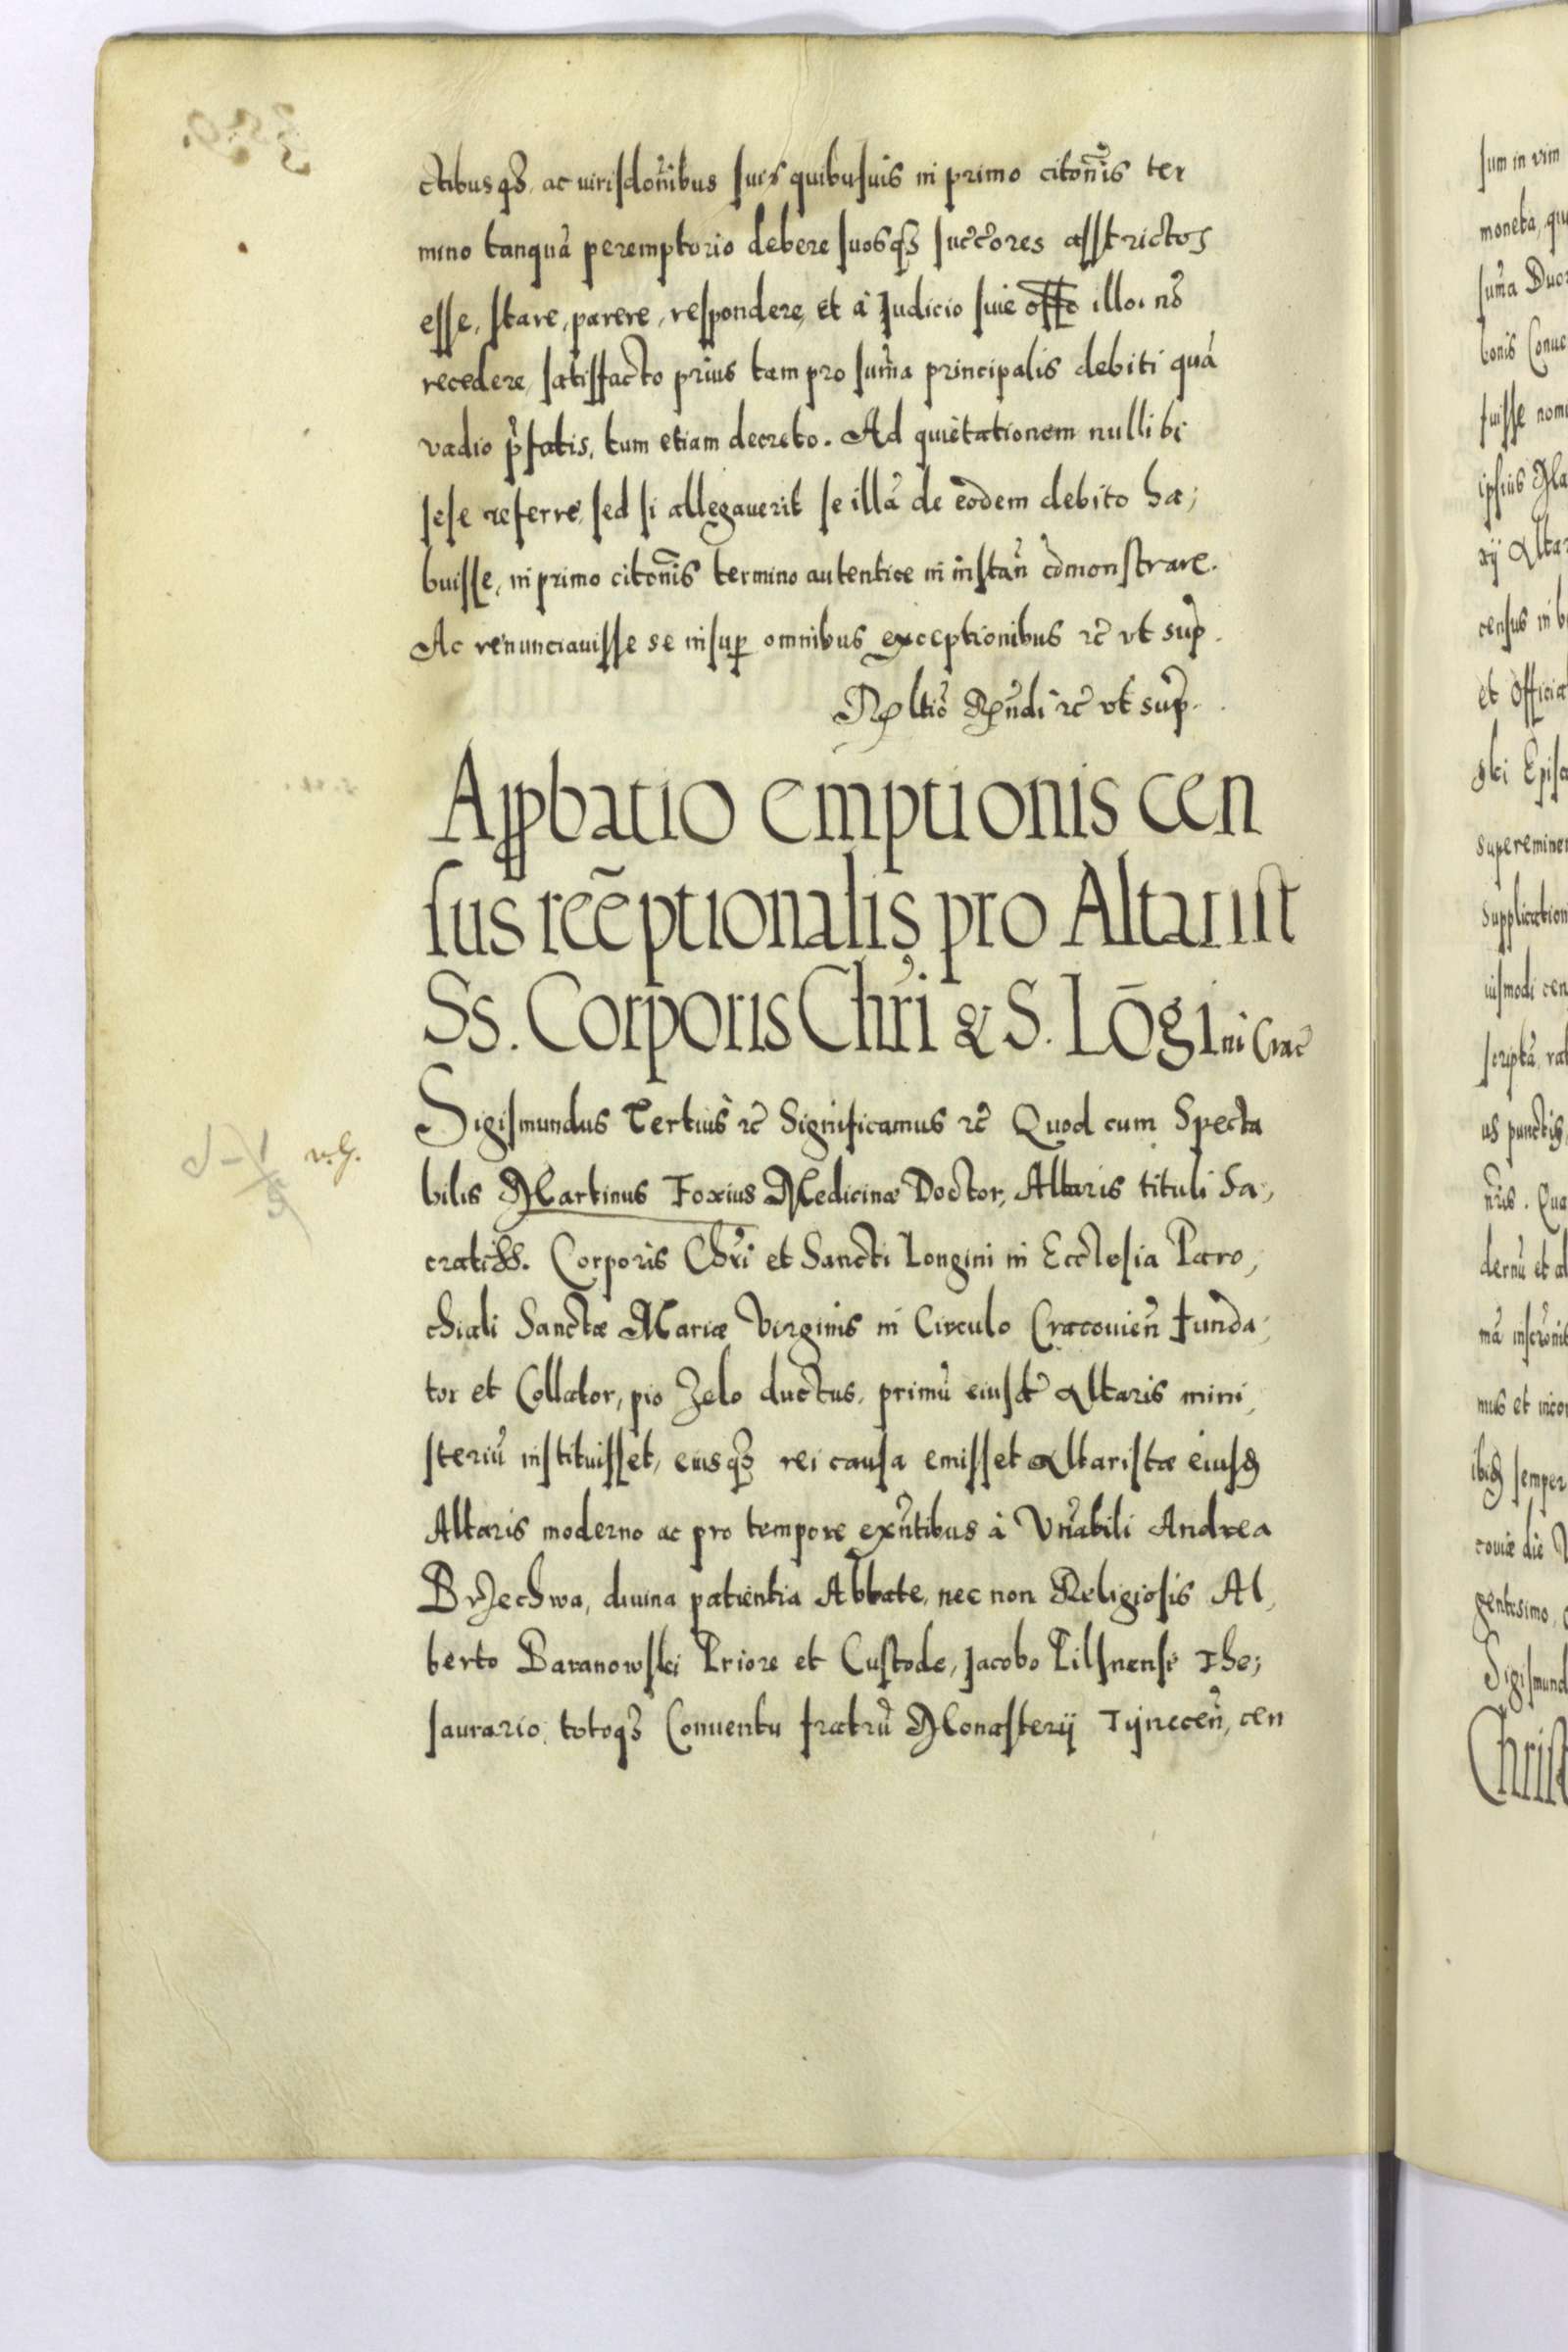 ctibusq3, ac iurisdonibus suis quibusuis in primo citonis ter
mino tanquā peremptorio debere suosq3 succores asstrictos
esse, stare, parere, respondere, et à Iudicio siue offo illo. nō
recedere, satisfacto prius tam pro sum̄a principalis debiti quā
vadio p̄fatis, tum etiam decreto. Ad quietationem nullibi
sese referre, sed si allegauerit se illā de eodem debito ha;
buisse, in primo citonis termino autentice in instan̄ cōmonstrare.
Ac renunciauisse se insup omnibus exceptionibus rc̄ vt sup.
Rltio Rndi rc̄ vt sup.
Appbatio emptionis cen
sus reēptionalis pro Altarist
Ss. Corporis Chri & S. Lōgini Crac
Sigismundus Tertius rc̄ Significamus rc̄ Quod cum Specta
bilis Martinus Foxius Medicinæ Doctor, Altaris tituli Sa,
cratiss. Corporis Chri et Sancti Longini in Ecclesia Paro,
chiali Sanctæ Mariæ Virginis in Circulo Cracouien̄ funda,
tor et Collator, pio Zelo ductus, primū eiusd Altaris mini,
steriū instituisset, eiusq3 rei causa emisset Altaristæ eiusd
Altaris moderno ac pro tempore exn̄tibus à Vn̄abili Andrea
Brzechwa, diuina patientia Abbate, nec non Religiosis Al,
berto Baranowski Priore et Custode, Jacobo Pilsnensi The;
saurario, totoq3 Conuentu fratrū Monasterij Tÿnecen̄, cen
sum in vim
moneta, qu
sum̄a Duc
bonis Conue
fuisse nomi
ipsius Ma
xij Altar
census in b
et Officia
ski Episc
supereminen
supplication
iusmodi cen
scriptā, rat
us punctis,
nris. Qua
dernū et al
mā inscronib
mus et inco
ibq semper
couiæ die V
gentesimo,
Sigismund
Christ